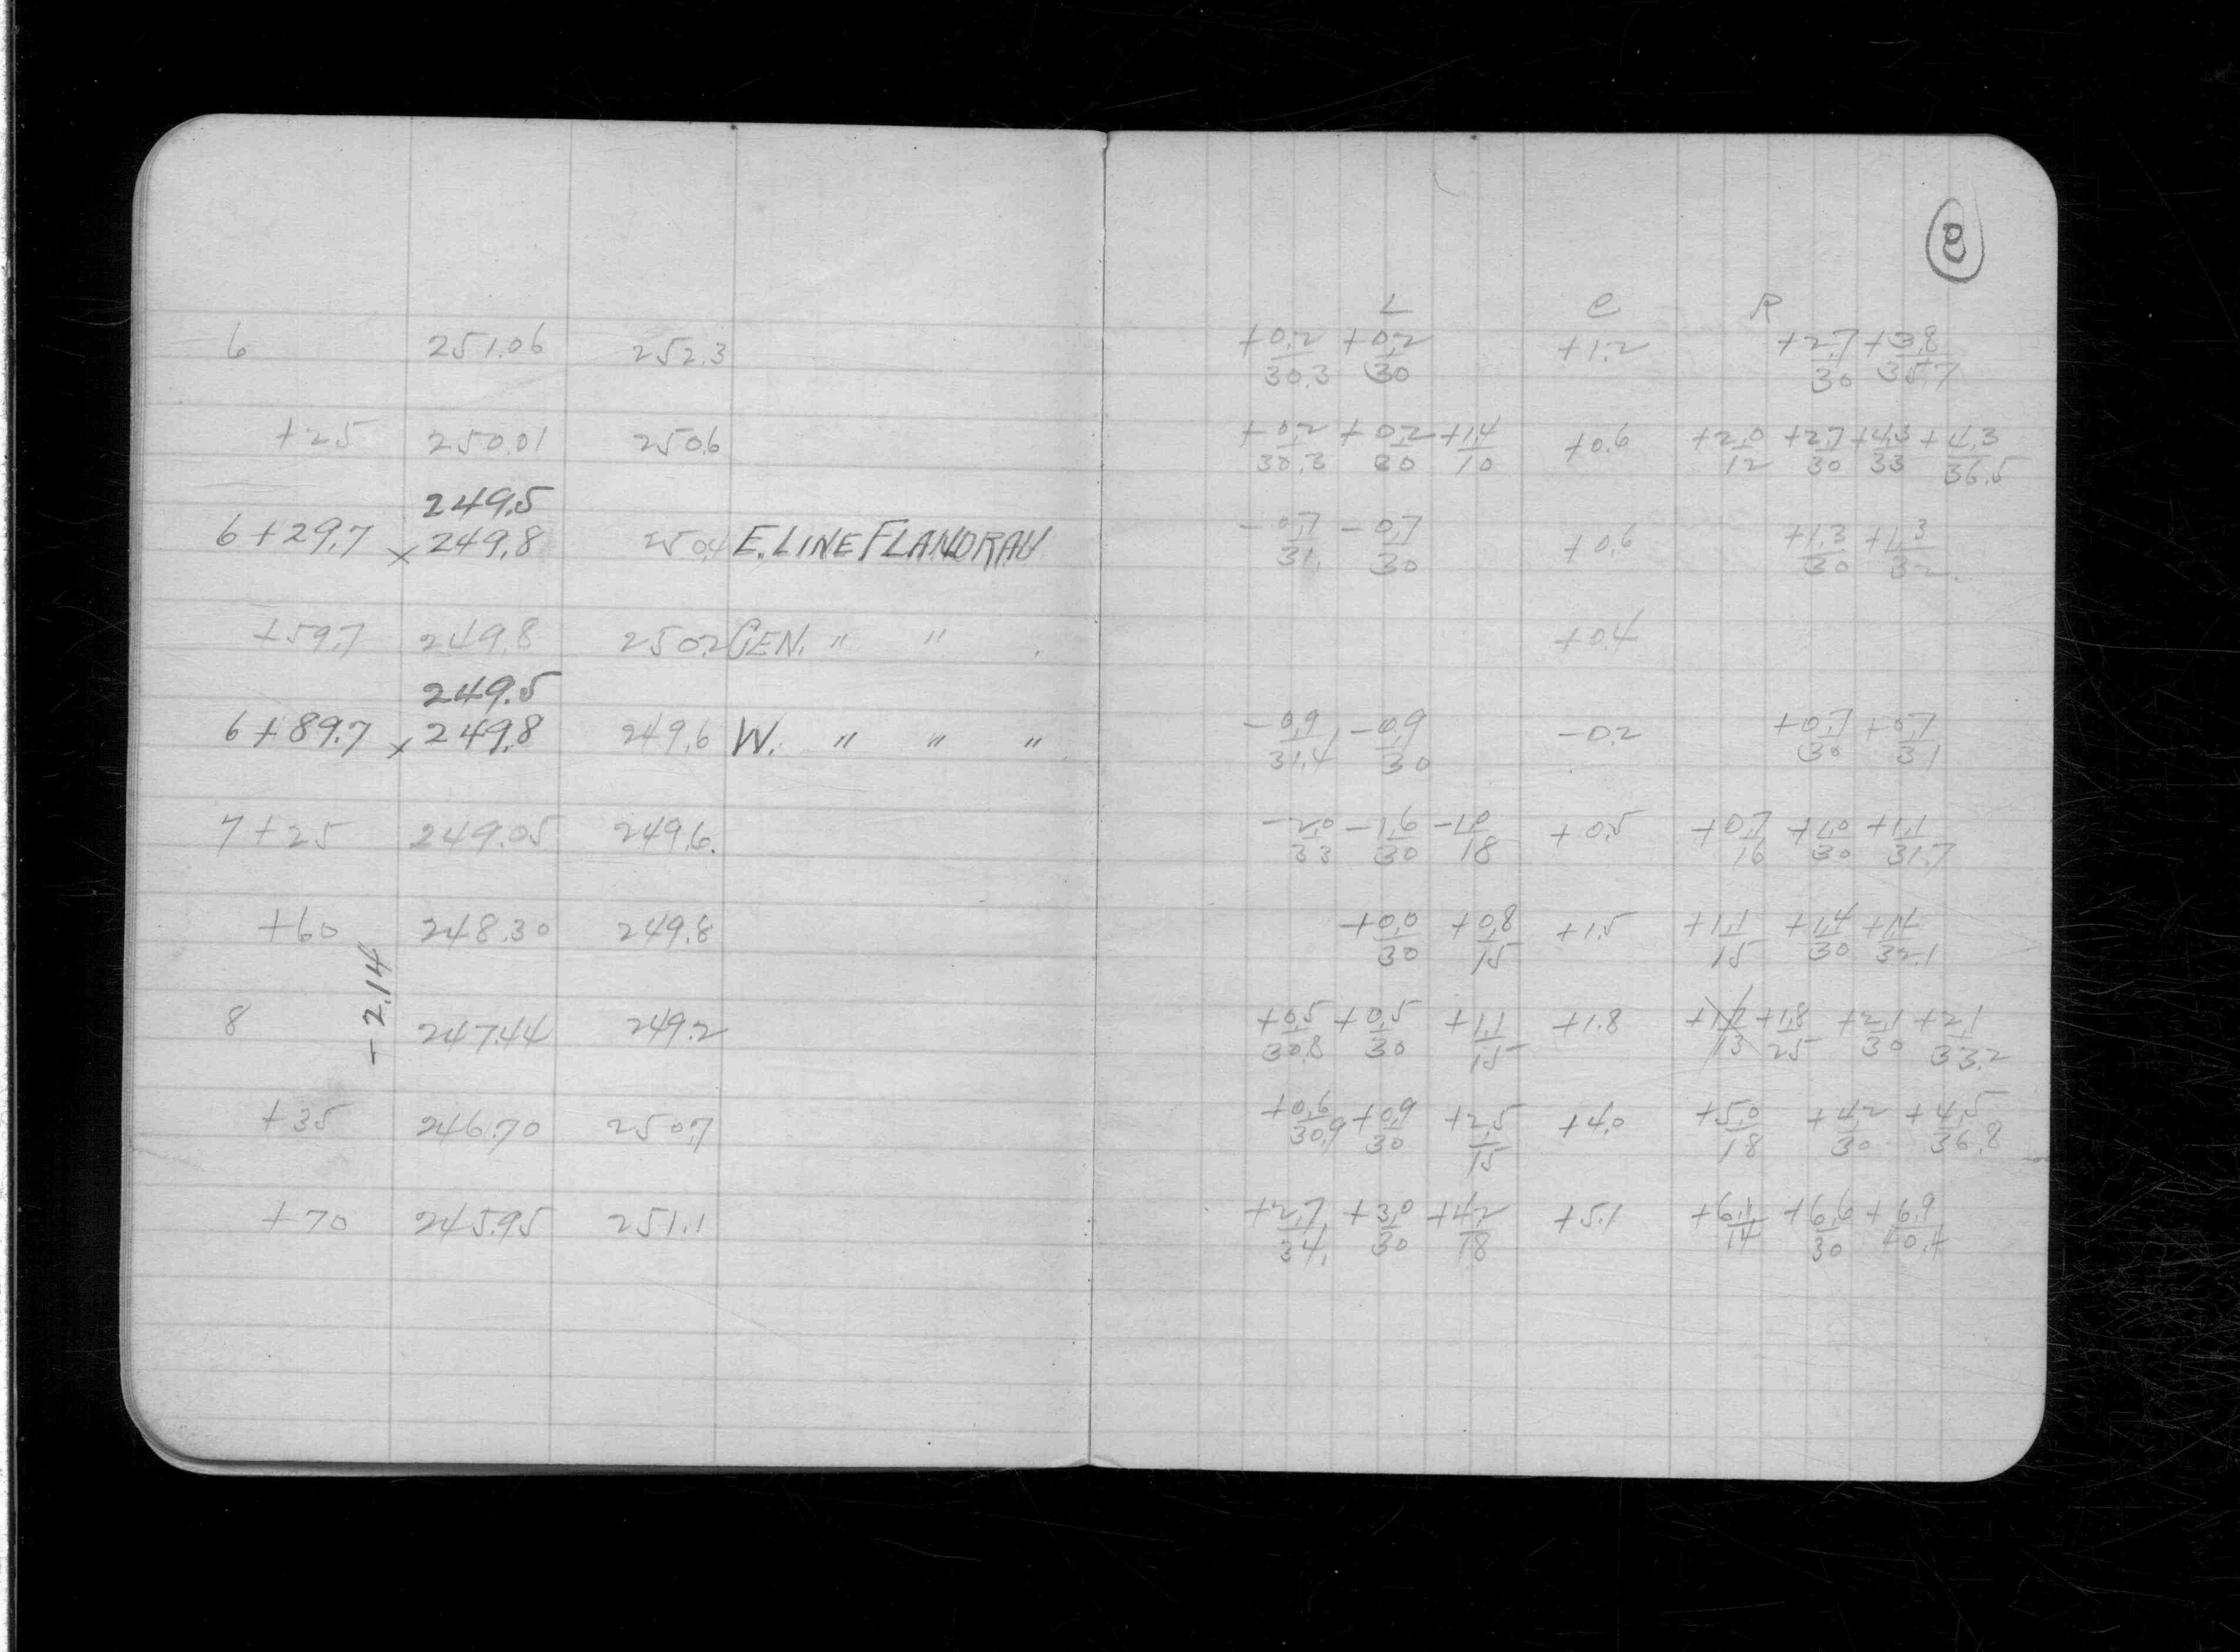 8
L C R
6 251.06 252.3 +0.2/30.3 +0.2/30 +1.2 +2.7/30 +3.8/35.7
+25 250.01 250.6 +0.2/30.3 +0.2/30 +1.4/10 +0.6 +2.0/12 +2.7/30 +4.3/33 +4.3/36.5
249.5
6+29.7 x 249.8 250.4 E. LINE FLANDRAU -0.7/31. -0.7/30 +0.6 +1.3/30 +1.3/32.
+59.7 249.8 250.2 CEN. " " +0.4
249.5
6+89.7 x 249.8 249.6 W. " " " -0.9/31.4 -0.9/30 -0.2 +0.7/30 +0.7/31
7+25 249.05 249.6. -2.0/33 -1.6/30 -1.0/18 +0.5 +0.7/16 +1.0/30 +1.1/31.7
+60 248.30 249.8 +0.0/30 +0.8/15 +1.5 +1.1/15 +1.4/30 +1.4/32.1
-2.14
8 247.44 249.2 +0.5/30.8 +0.5/30 +1.1/15 +1.8 +1.8/25 +2.1/30 +2.1/33.2
+35 246.70 250.7 +0.6/30.9 +0.9/30 +2.5/15 +4.0 +5.0/18 +4.2/30 +4.5/36.8
+70 245.95 251.1 +2.7/34. +3.0/30 +4.2/18 +5.1 +6.1/14 +6.6/30 +6.9/40.4